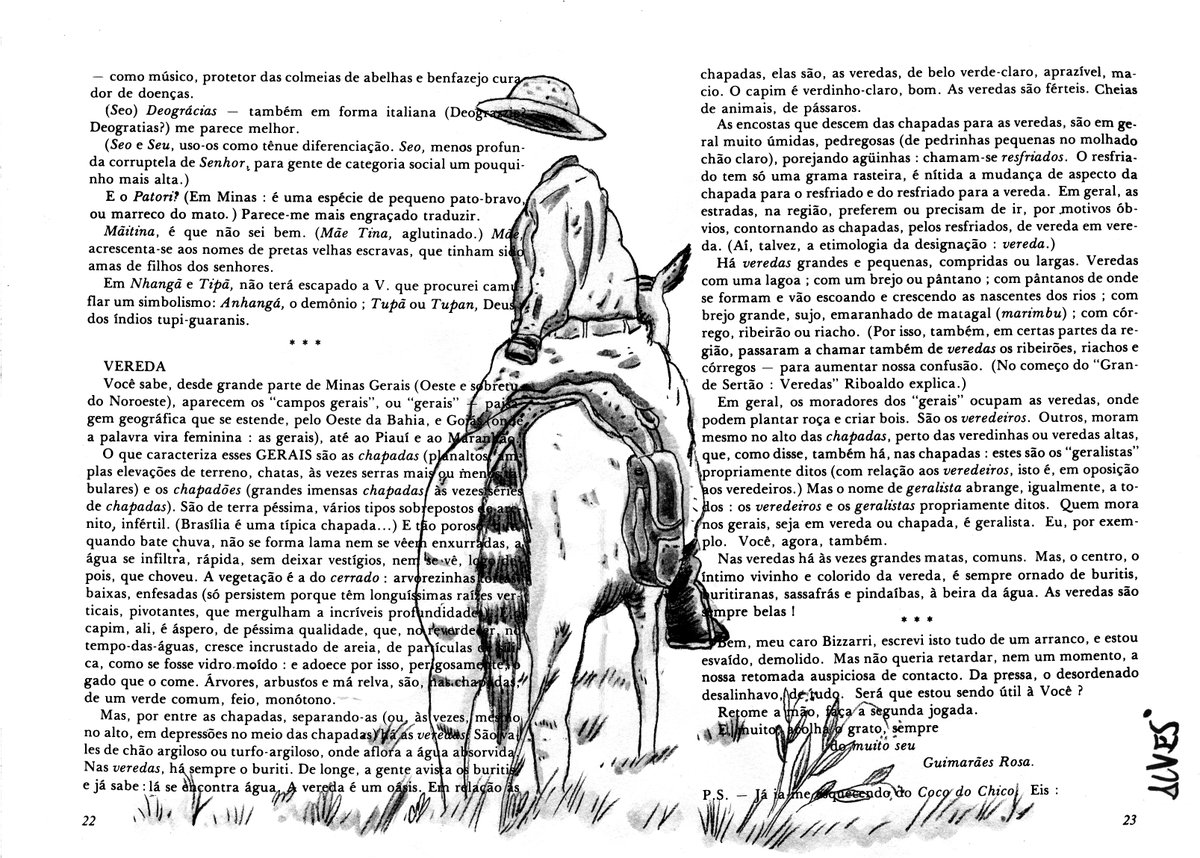 — como músico, protetor das colmeias de abelhas e benfazejo cura
dor de doenças.
(Seo) Deográcias — também em forma italiana (Deograzzia?
Deogratias?) me parece melhor.
(Seo e Seu, uso-os como tênue diferenciação. Seo, menos profun-
da corruptela de Senhor, para gente de categoria social um pouqui-
nho mais alta.)
E o Patori? (Em Minas : é uma espécie de pequeno pato-bravo,
ou marreco do mato. ) Parece-me mais engraçado traduzir.
Mãitina, é que não sei bem. (Mãe Tina, aglutinado.) Mãe
acrescenta-se aos nomes de pretas velhas escravas, que tinham sido
amas de filhos dos senhores.
Em Nhangã e Tipã, não terá escapado a V. que procurei camu
flar um simbolismo: Anhangá, o demônio ; Tupã ou Tupan, Deus
dos índios tupi-guaranis.
* * *
VEREDA
Você sabe, desde grande parte de Minas Gerais (Oeste e sobretu
do Noroeste), aparecem os "campos gerais", ou "gerais" — paisa
gem geográfica que se estende, pelo Oeste da Bahia, e Goiás (onde
a palavra vira feminina : as gerais), até ao Piauí e ao Maranhão
O que caracteriza esses GERAIS são as chapadas (planaltos, am
plas elevações de terreno, chatas, às vezes serras mais ou menos
bulares) e os chapadões (grandes imensas chapadas, às vezes séries
de chapadas). São de terra péssima, vários tipos sobrepostos de
nito, infértil. (Brasília é uma típica chapada...) E tão poroso, que
quando bate chuva, não se forma lama nem se vêem enxurradas, a
água se infiltra, rápida, sem deixar vestígios, nem se vê, logo de
pois, que choveu. A vegetação é a do cerrado : arvorezinhas tortas
baixas, enfesadas (só persistem porque têm longuíssimas raízes ver-
ticais, pivotantes, que mergulham a incríveis profundidades). E o
capim, ali, é áspero, de péssima qualidade, que, no reverdecer, no
tempo-das-águas, cresce incrustado de areia, de partículas de síli
ca, como se fosse vidro moído : e adoece por isso, perigosamente, o
gado que o come. Árvores, arbustos e má relva, são, nas chapadas,
de um verde comum, feio, monótono.
Mas, por entre as chapadas, separando-as (ou, às vezes, mesmo
no alto, em depressões no meio das chapadas) há as veredas. São va
les de chão argiloso ou turfo-argiloso, onde aflora a água absorvida.
Nas veredas, há sempre o buriti. De longe, a gente avista os buritis,
e já sabe : lá se encontra água. A vereda é um oásis. Em relação às
22
chapadas, elas são, as veredas, de belo verde-claro, aprazível, ma-
cio. O capim é verdinho-claro, bom. As veredas são férteis. Cheias
de animais, de pássaros.
As encostas que descem das chapadas para as veredas, são em ge-
ral muito úmidas, pedregosas (de pedrinhas pequenas no molhado
chão claro), porejando agüinhas : chamam-se resfriados. O resfria-
do tem só uma grama rasteira, é nítida a mudança de aspecto da
chapada para o resfriado e do resfriado para a vereda. Em geral, as
estradas, na região, preferem ou precisam de ir, por motivos ób-
vios, contornando as chapadas, pelos resfriados, de vereda em vere-
da. (Aí, talvez, a etimologia da designação : vereda.)
Há veredas grandes e pequenas, compridas ou largas. Veredas
com uma lagoa ; com um brejo ou pântano ; com pântanos de onde
se formam e vão escoando e crescendo as nascentes dos rios ; com
brejo grande, sujo, emaranhado de matagal (marimbu) ; com cór-
rego, ribeirão ou riacho. (Por isso, também, em certas partes da re-
gião, passaram a chamar também de veredas os ribeirões, riachos e
córregos — para aumentar nossa confusão. (No começo do "Gran-
de Sertão : Veredas" Riboaldo explica.)
Em geral, os moradores dos "gerais" ocupam as veredas, onde
podem plantar roça e criar bois. São os veredeiros. Outros, moram
mesmo no alto das chapadas, perto das veredinhas ou veredas altas,
que, como disse, também há, nas chapadas : estes são os "geralistas"
propriamente ditos (com relação aos veredeiros, isto é, em oposição
aos veredeiros.) Mas o nome de geralista abrange, igualmente, a to-
dos : os veredeiros e os geralistas propriamente ditos. Quem mora
nos gerais, seja em vereda ou chapada, é geralista. Eu, por exem-
plo. Você, agora, também.
Nas veredas há às vezes grandes matas, comuns. Mas, o centro, o
íntimo vivinho e colorido da vereda, é sempre ornado de buritis,
buritiranas, sassafrás e pindaíbas, à beira da água. As veredas são
sempre belas !
* * *
Bem, meu caro Bizzarri, escrevi isto tudo de um arranco, e estou
esvaído, demolido. Mas não queria retardar, nem um momento, a
nossa retomada auspiciosa de contacto. Da pressa, o desordenado
desalinhavo, de tudo. Será que estou sendo útil à Você ?
Retome a mão, faça a segunda jogada.
E, muito, acolha o grato, sempre
do muito seu
Guimarães Rosa.
P.S. — Já ia-me esquecendo do Coco do Chico. Eis :
23
ALVES